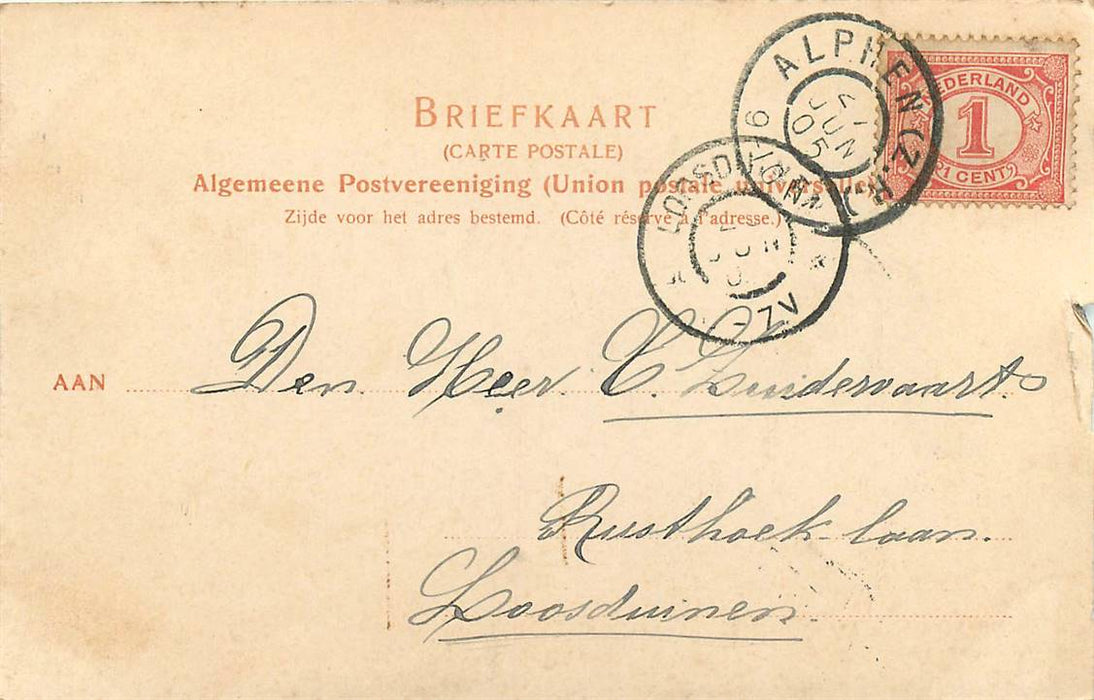 BRIEFKAART
(CARTE POSTALE)
Algemeene Postvereeniging (Union postale universelle)
Zijde voor het adres bestemd. (Côté réservé à l'adresse.)
ALPHEN (Z.H.)
JUN
05
NEDERLAND
1
1 CENT
LOOSDUINEN
AAN Den Heer C. Zuidervaart
Rusthoek-laan.
Loosduinen